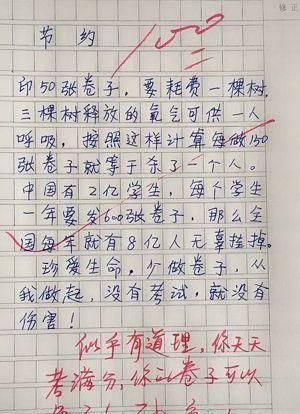 修正
节约
100
印50张卷子，要耗费一棵树，
三棵树释放的氧气可供一人
呼吸，按照这样计算每做150
张卷子就等于杀了一个人。
中国有2亿学生，每个学生
一年要发600张卷子，那么全
国每年就有8亿人无辜挂掉。
珍爱生命，少做卷子，从
我做起，没有考试，就没有
伤害！
似乎有道理，你天天
考满分，你的卷子可以